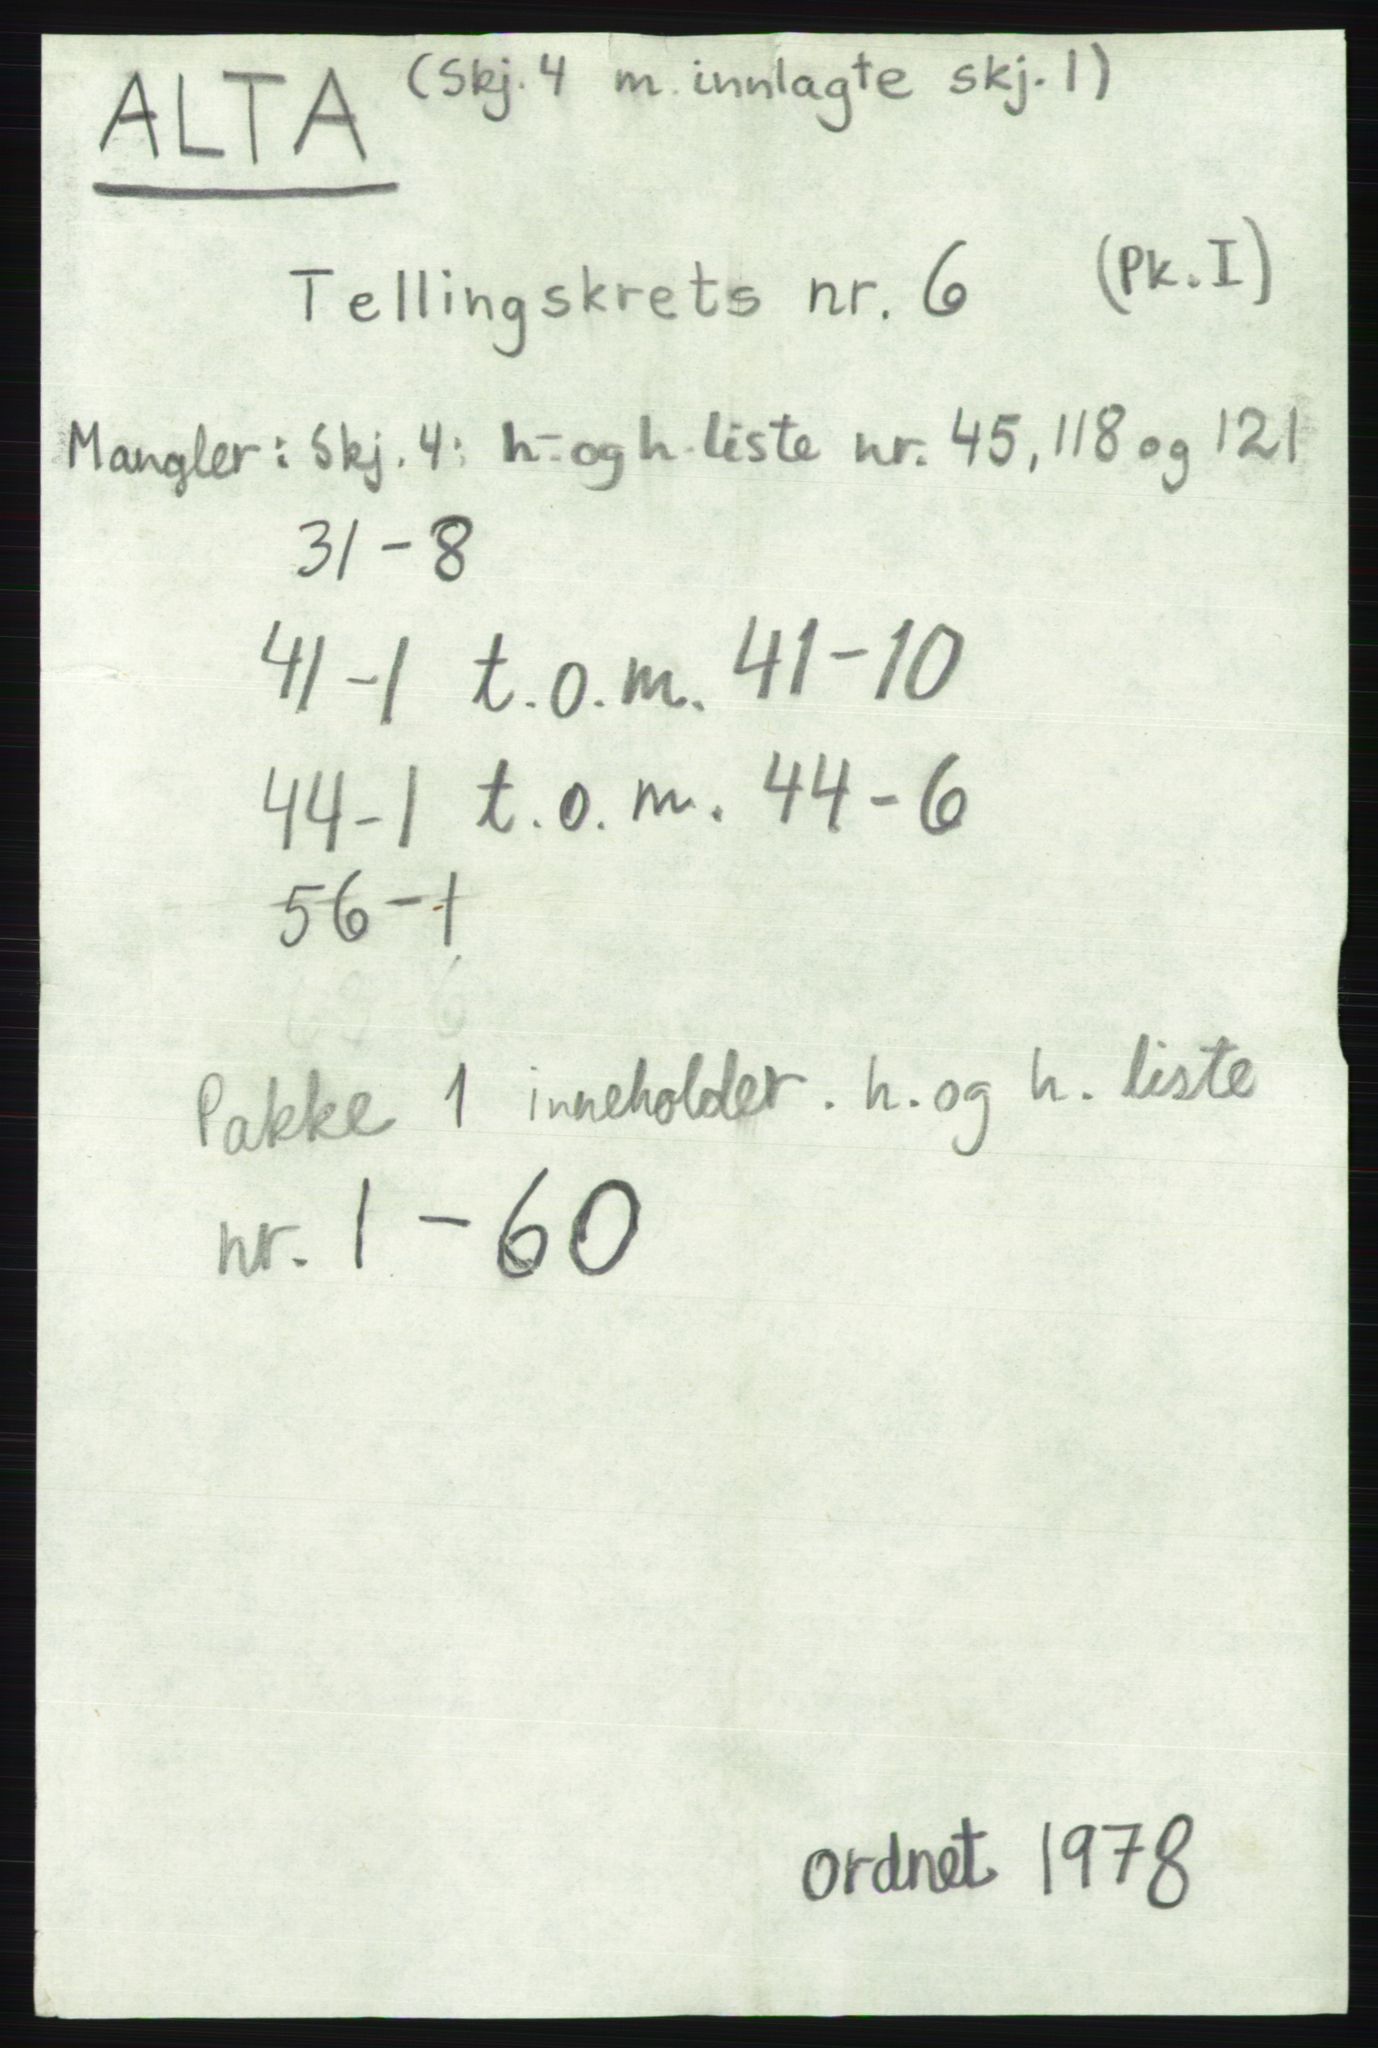 ALTA (Skj. 4 m. innlagte skj. 1)
Tellingskrets nr. 6 (Pk. I)
Mangler: Skj. 4: h- og h-liste nr. 45, 118 og 121
31-8
41-1 t.o.m. 41-10
44-1 t.o.m. 44-6
56-1
Pakke 1 inneholder. h. og h. liste
nr. 1-60
ordnet 1978